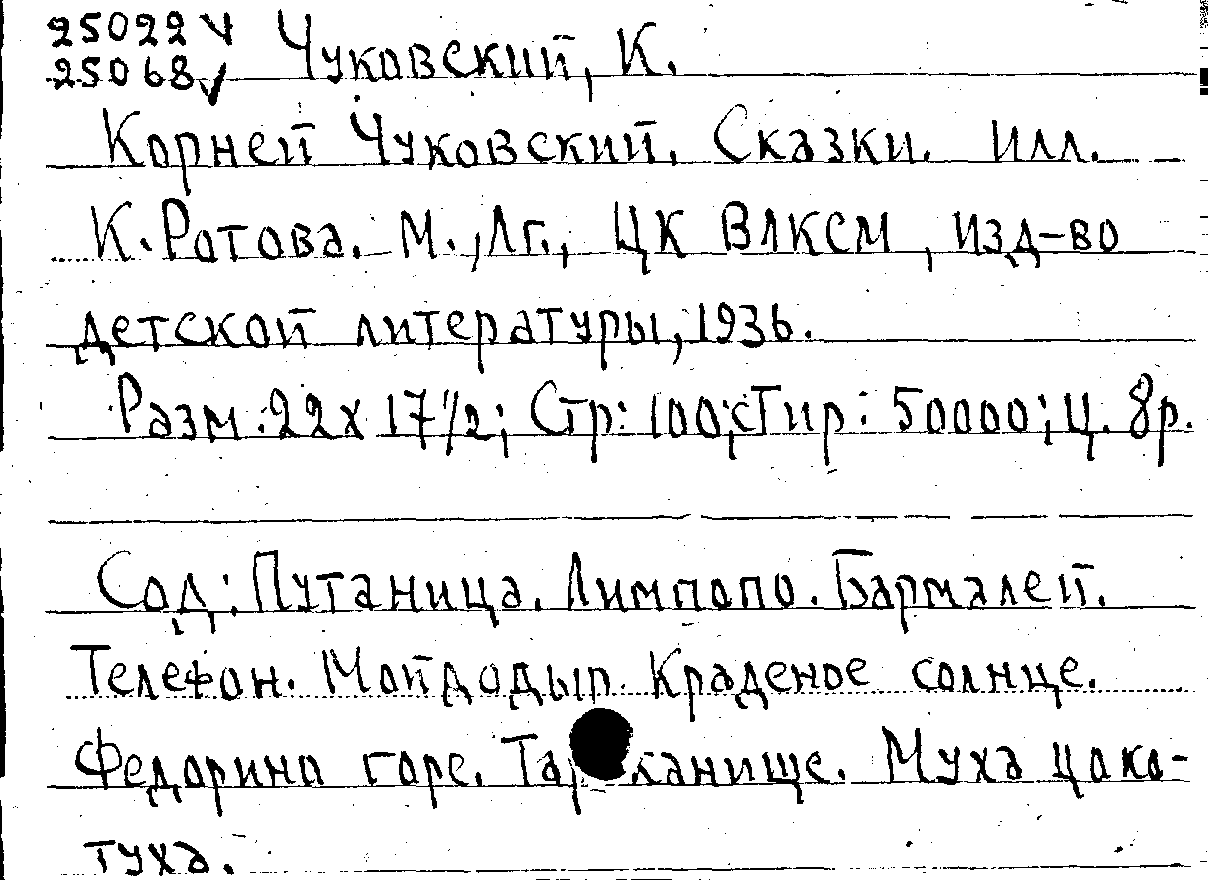 25022 √
25068 √ Чуковский, К.
Корней Чуковский. Сказки. Илл.
К. Ротова. М., Лг., ЦК ВЛКСМ, изд-во
детской литературы, 1936.
Разм: 22 х 17 1/2; Стр: 100; Тир: 50000; Ц. 8р.
Сод: Путаница. Лимпопо. Бармалей.
Телефон. Мойдодыр. Краденое солнце.
Федорино горе. Тараканище. Муха цоко-
туха.